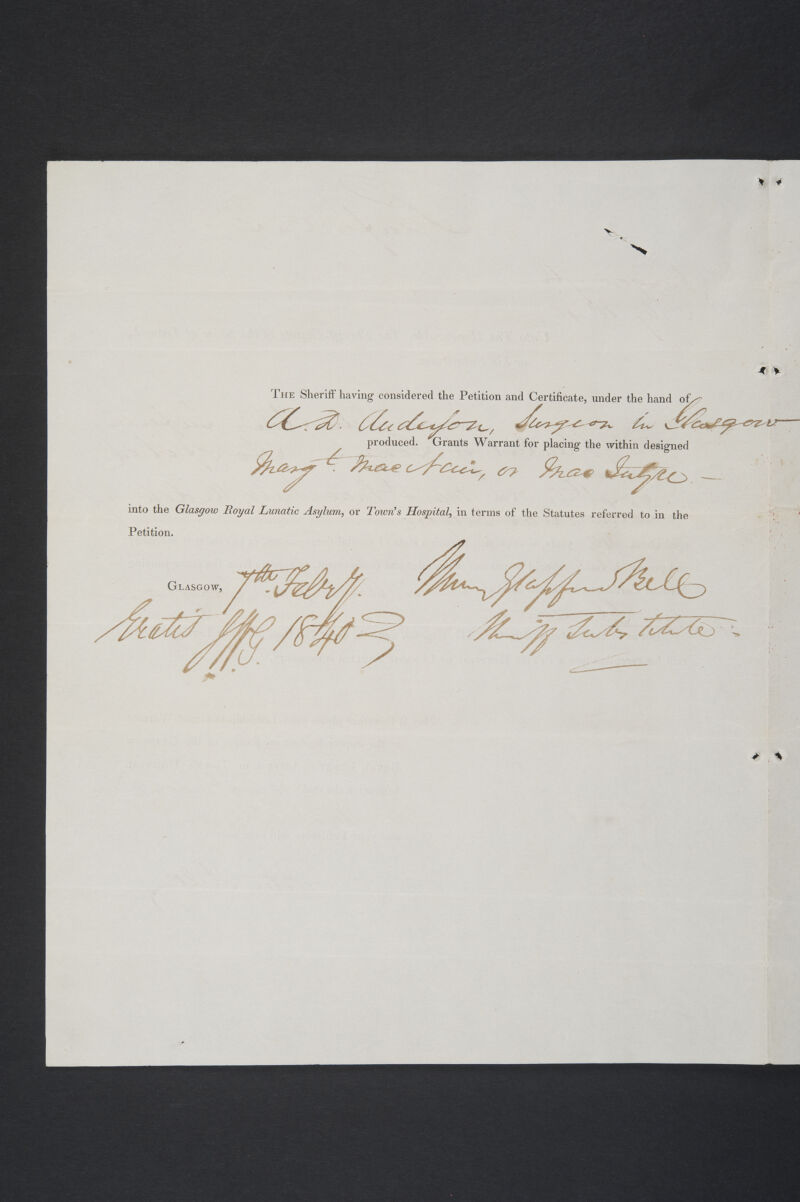 THE Sheriff having considered the Petition and Certificate, under the hand of
A. D. Anderson, Surgeon in Glasgow
produced. Grants Warrant for placing the within designed
Margt. MacNair, or MacIntyre —
into the Glasgow Royal Lunatic Asylum, or Town's Hospital, in terms of the Statutes referred to in the
Petition.
GLASGOW, 7th Febry. Henry Glassford Bell
Gratis 1840 Sheriff Substitute